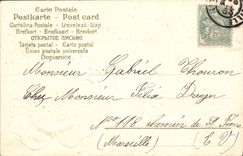 Carte Postale
Postkarte - Post card
Cartolina Postale - Levelező-Lap
Briefkort - Briefkaart - Brevkort
ОТКРЫТОЕ ПИСЬМО
Tarjeta postal - Carta postal
Union postale universelle
Dopisnice
5
Monsieur Gabriel Thouron
Chez Monsieur Félix
N° 118 chemin de St
(Marseille) (E V)